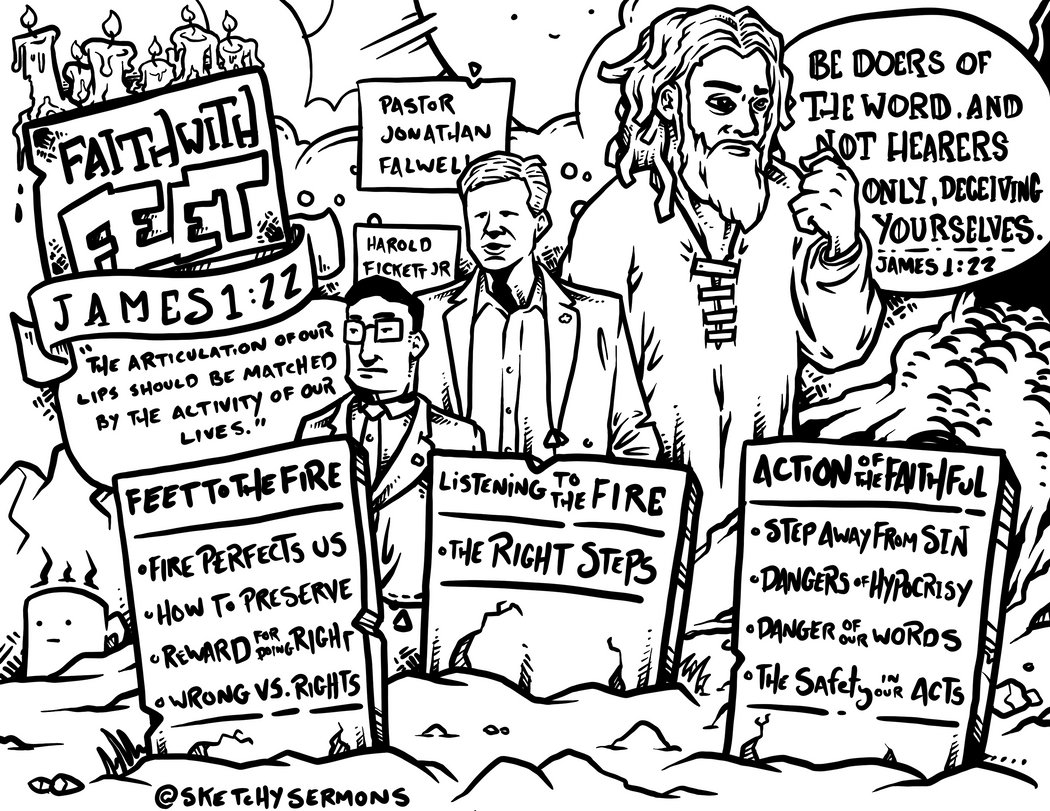 FAITH WITH
FEET
JAMES 1:22
"THE ARTICULATION OF OUR
LIPS SHOULD BE MATCHED
BY THE ACTIVITY OF OUR
LIVES."
PASTOR
JONATHAN
FALWELL
HAROLD
FICKETT JR
BE DOERS OF
THE WORD. AND
NOT HEARERS
ONLY, DECEIVING
YOURSELVES.
JAMES 1:22
FEET TO THE FIRE
• FIRE PERFECTS US
• HOW TO PRESERVE
• REWARD FOR DOING RIGHT
• WRONG VS. RIGHTS
LISTENING TO THE FIRE
• THE RIGHT STEPS
ACTION OF THE FAITHFUL
• STEP AWAY FROM SIN
• DANGERS OF HYPOCRISY
• DANGER OF OUR WORDS
• THE SAFETY IN OUR ACTS
@SKETCHYSERMONS